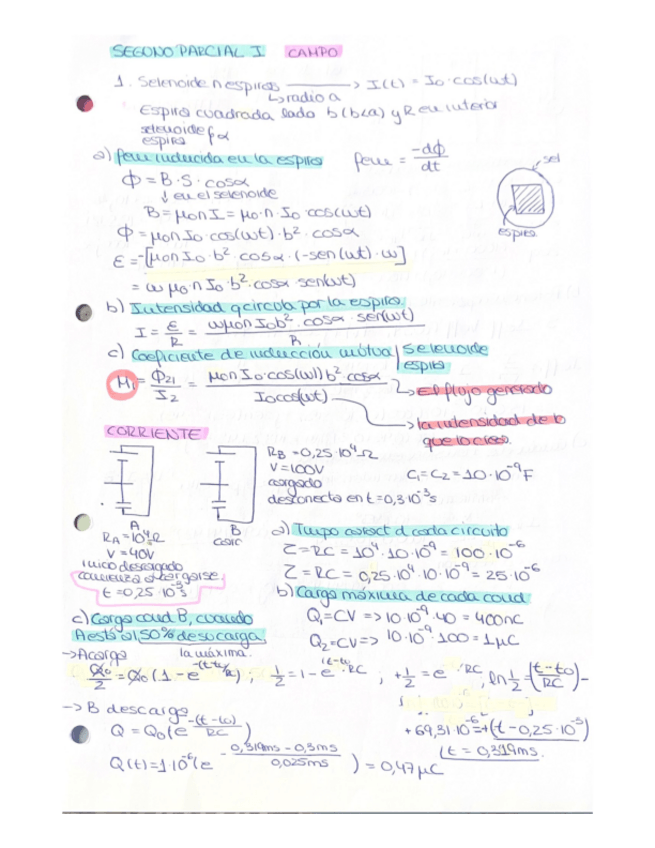 SEGUNDO PARCIAL I CAMPO
1. Selenoide n espiras → I(t) = I₀·cos(ωt)
↳ radio a
Espira cuadrada lado b (b<a) y R en interior
selenoide
espira α
a) fem inducida en la espira fem = -dΦ/dt
sel
Φ = B·S·cosα
↓ en el selenoide
B = μ₀nI = μ₀·n·I₀·cos(ωt)
Φ = μ₀nI₀·cos(ωt)·b²·cosα
espira
ε = -[μ₀nI₀·b²·cosα·(-sen(ωt)·ω]
= ω μ₀·n I₀·b²·cosα·sen(ωt)
b) Intensidad q circula por la espira.
I = ε/R = ωμ₀nI₀b²·cosα·sen(ωt)/R
c) Coeficiente de inducción mútua selenoide
espira
M₁ = Φ₂₁/I₂ = μ₀nI₀·cos(ωt)b²·cosα/I₀cos(ωt)
→ El flujo generado
→ la intensidad de lo
que lo crea.
CORRIENTE
R_B = 0,25·10⁴Ω
V = 100V
cargado
desconecta en t=0,3·10⁻³s
C₁=C₂=10·10⁻⁹F
A
R_A=10⁴Ω
V=40V
B
inicio descargado
comienza a cargarse
t=0,25·10⁻³s
a) Tiempo caract d cada circuito
τ = RC = 10⁴·10·10⁻⁹ = 100·10⁻⁶
τ = RC = 0,25·10⁴·10·10⁻⁹ = 25·10⁻⁶
b) Carga máxima de cada cond
Q₁=CV => 10·10⁻⁹·40 = 400nC
Q₂=CV => 10·10⁻⁹·100 = 1μC
c) Carga cond B, cuando
A esta al 50% descarga
la máxima.
→ A carga
Q₀/2 = Q₀(1-e^-(t-t₀/RC) ; 1/2 = 1-e^(t-t₀/RC ; +1/2 = e /RC , ln 1/2 = (t-t₀/RC)-
→ B descarga
Q = Q₀(e^-(t-t₀)/RC)
+69,31·10⁻⁶=+(t-0,25·10⁻³)
(t = 0,319ms.
Q(t)=1·10⁻⁶(e^-0,319ms-0,3ms/0,025ms) = 0,47μC